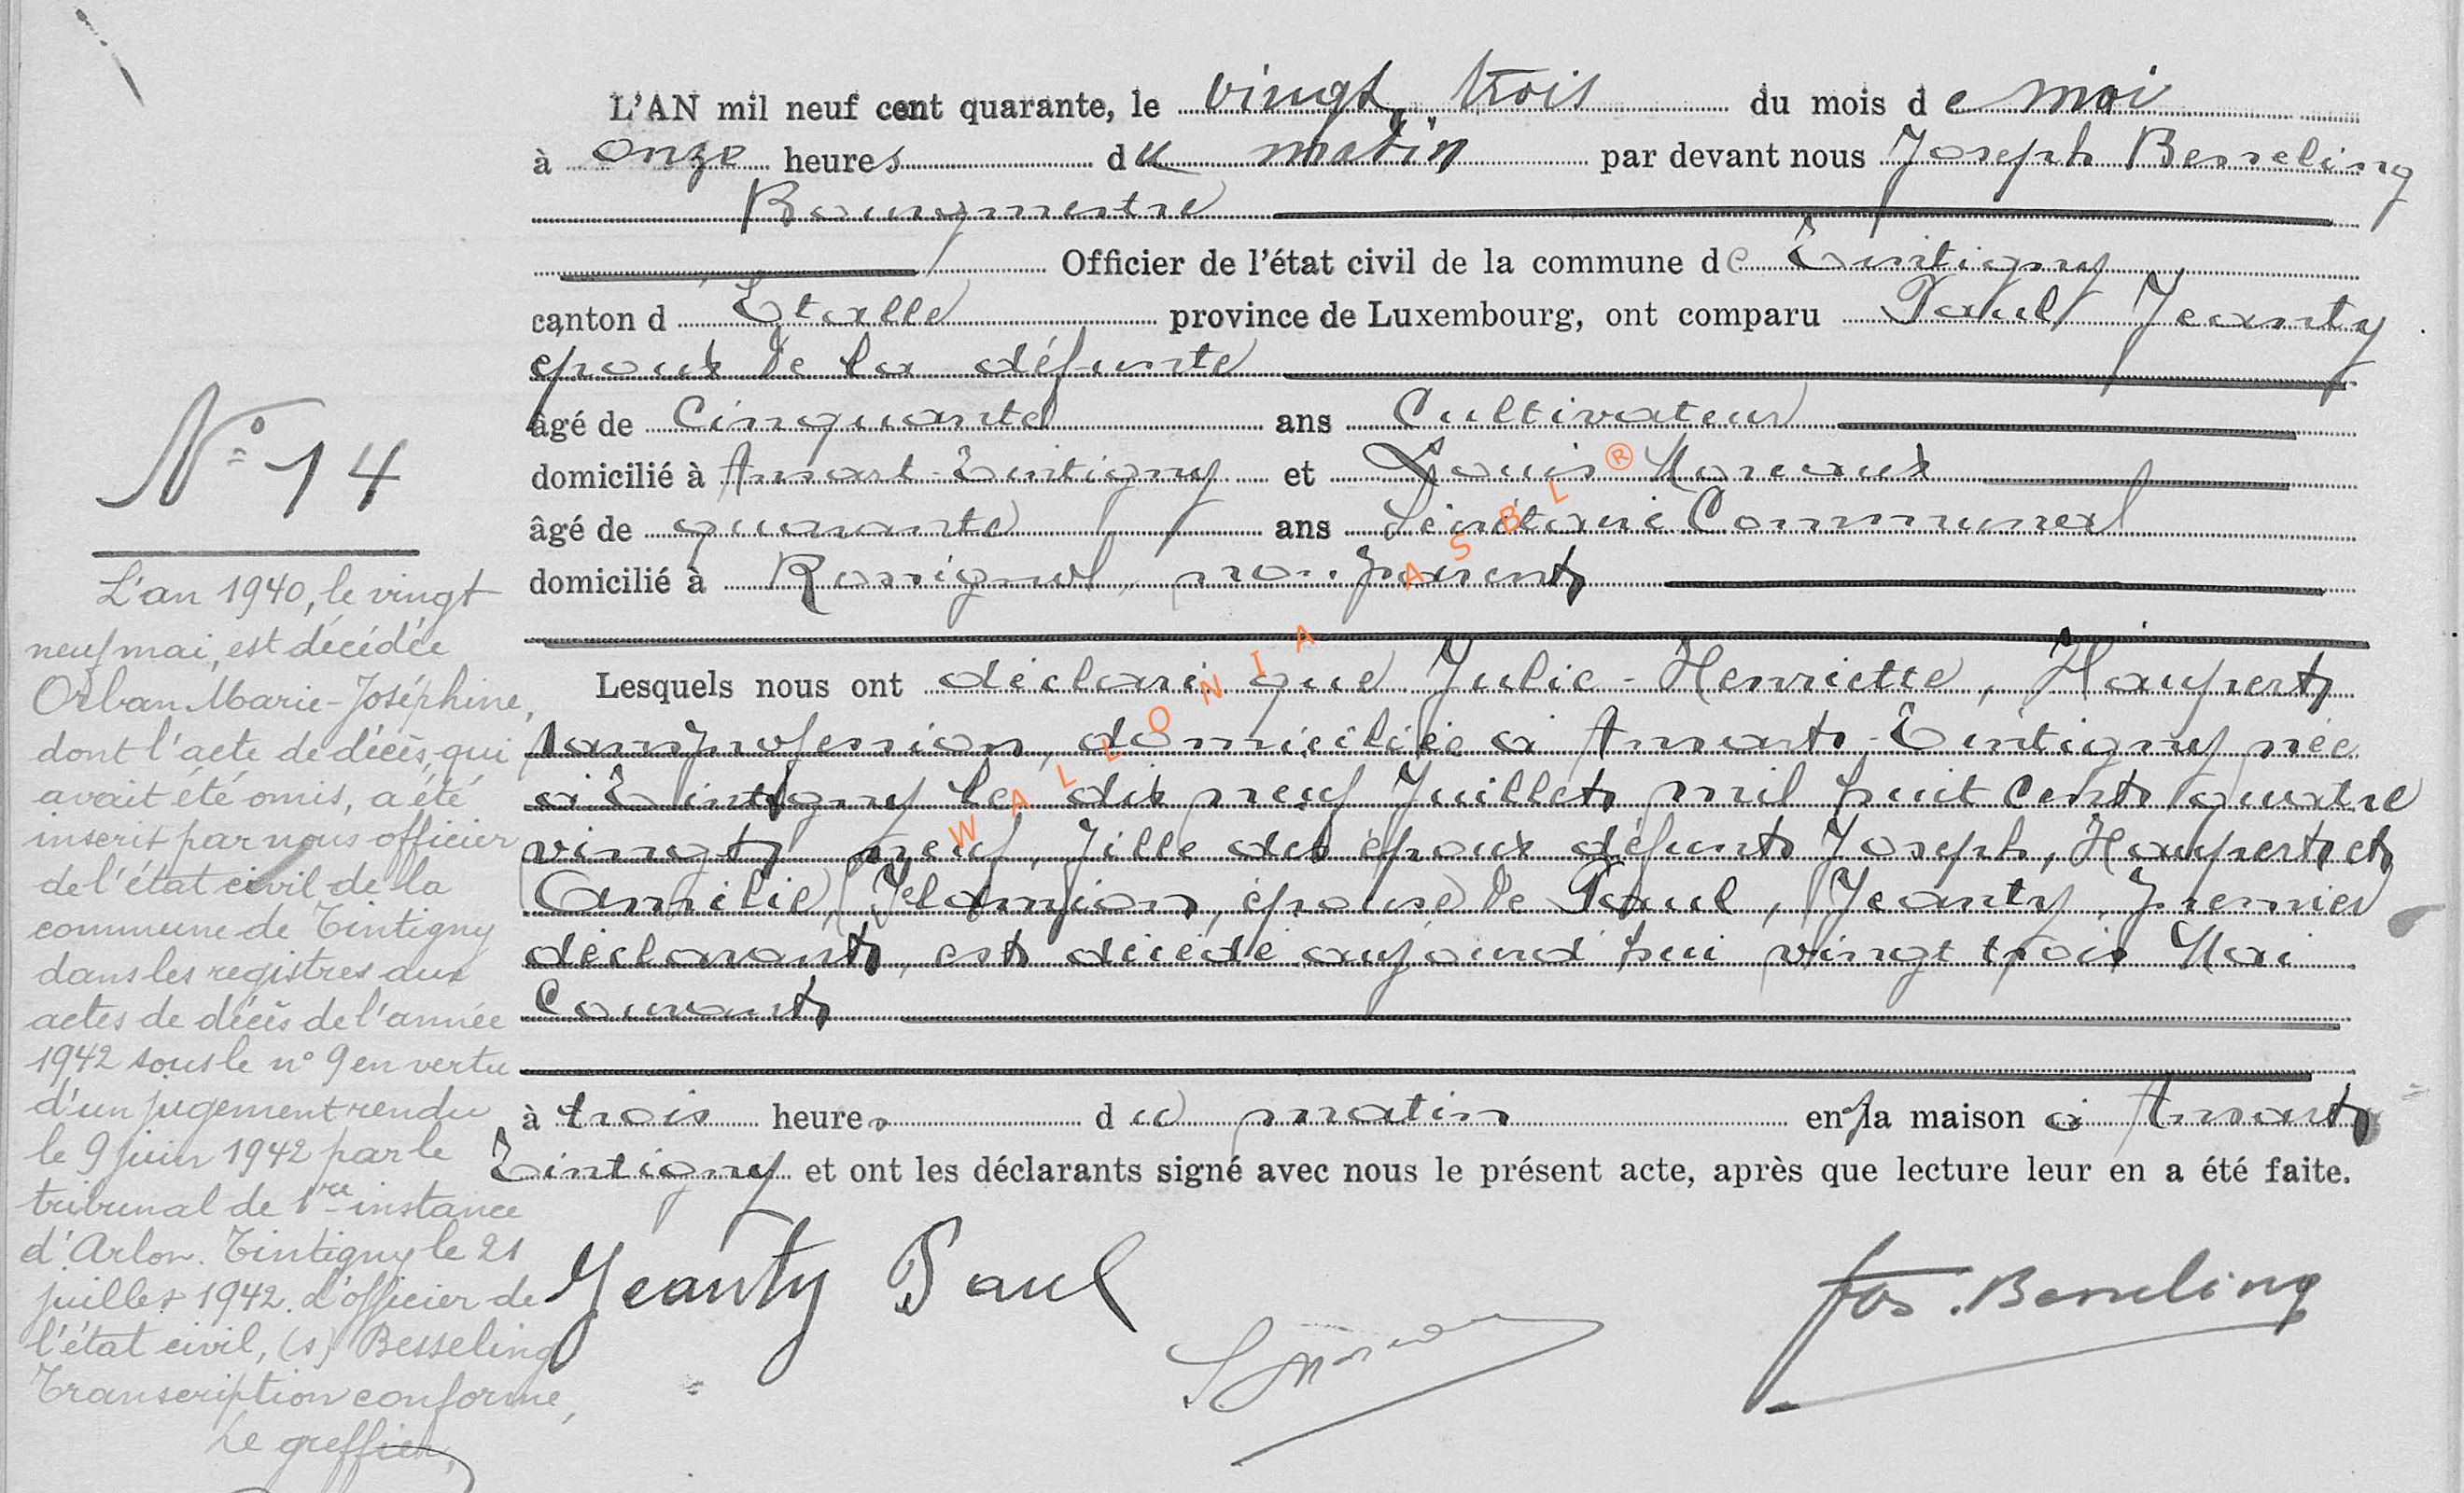 L'AN mil neuf cent quarante, le vingt trois du mois de mai
à onze heures du matin par devant nous Joseph Besseling
Bourgmestre
Officier de l'état civil de la commune de Tintigny
canton d'Etalle province de Luxembourg, ont comparu Paul Jeanty
époux de la défunte
âgé de Cinquante ans Cultivateur
domicilié à Ansart-Tintigny et Louis Moreaux
âgé de quarante ans Secrétaire Communal
domicilié à Rossignol, non parent
Lesquels nous ont déclaré que Julie-Henriette, Haupert
sans profession, domiciliée à Ansart-Tintigny née
à Tintigny le dix neuf Juillet mil huit cent quatre
vingt neuf, fille des époux défunts Joseph, Haupert et
Amélie, épouse de Paul, Jeanty, premier
déclarant, est décédé aujourd'hui vingt trois Mai
Courant
à trois heures du matin en la maison à Ansart
Tintigny et ont les déclarants signé avec nous le présent acte, après que lecture leur en a été faite.
Jeanty Paul
Jos. Besseling
N° 14
L'an 1940, le vingt
neuf mai, est décédée
Orban Marie-Joséphine,
dont l'acte de décès, qui
avait été omis, a été
inscrit par nous officier
de l'état civil de la
commune de Tintigny
dans les registres aux
actes de décès de l'année
1942 sous le n° 9 en vertu
d'un jugement rendu
le 9 juin 1942 par le
tribunal de 1re instance
d'Arlon. Tintigny le 21
juillet 1942. L'officier de
l'état civil, (s) Besseling
Transcription conforme,
Le greffier,
WALLONIA ASBL ®